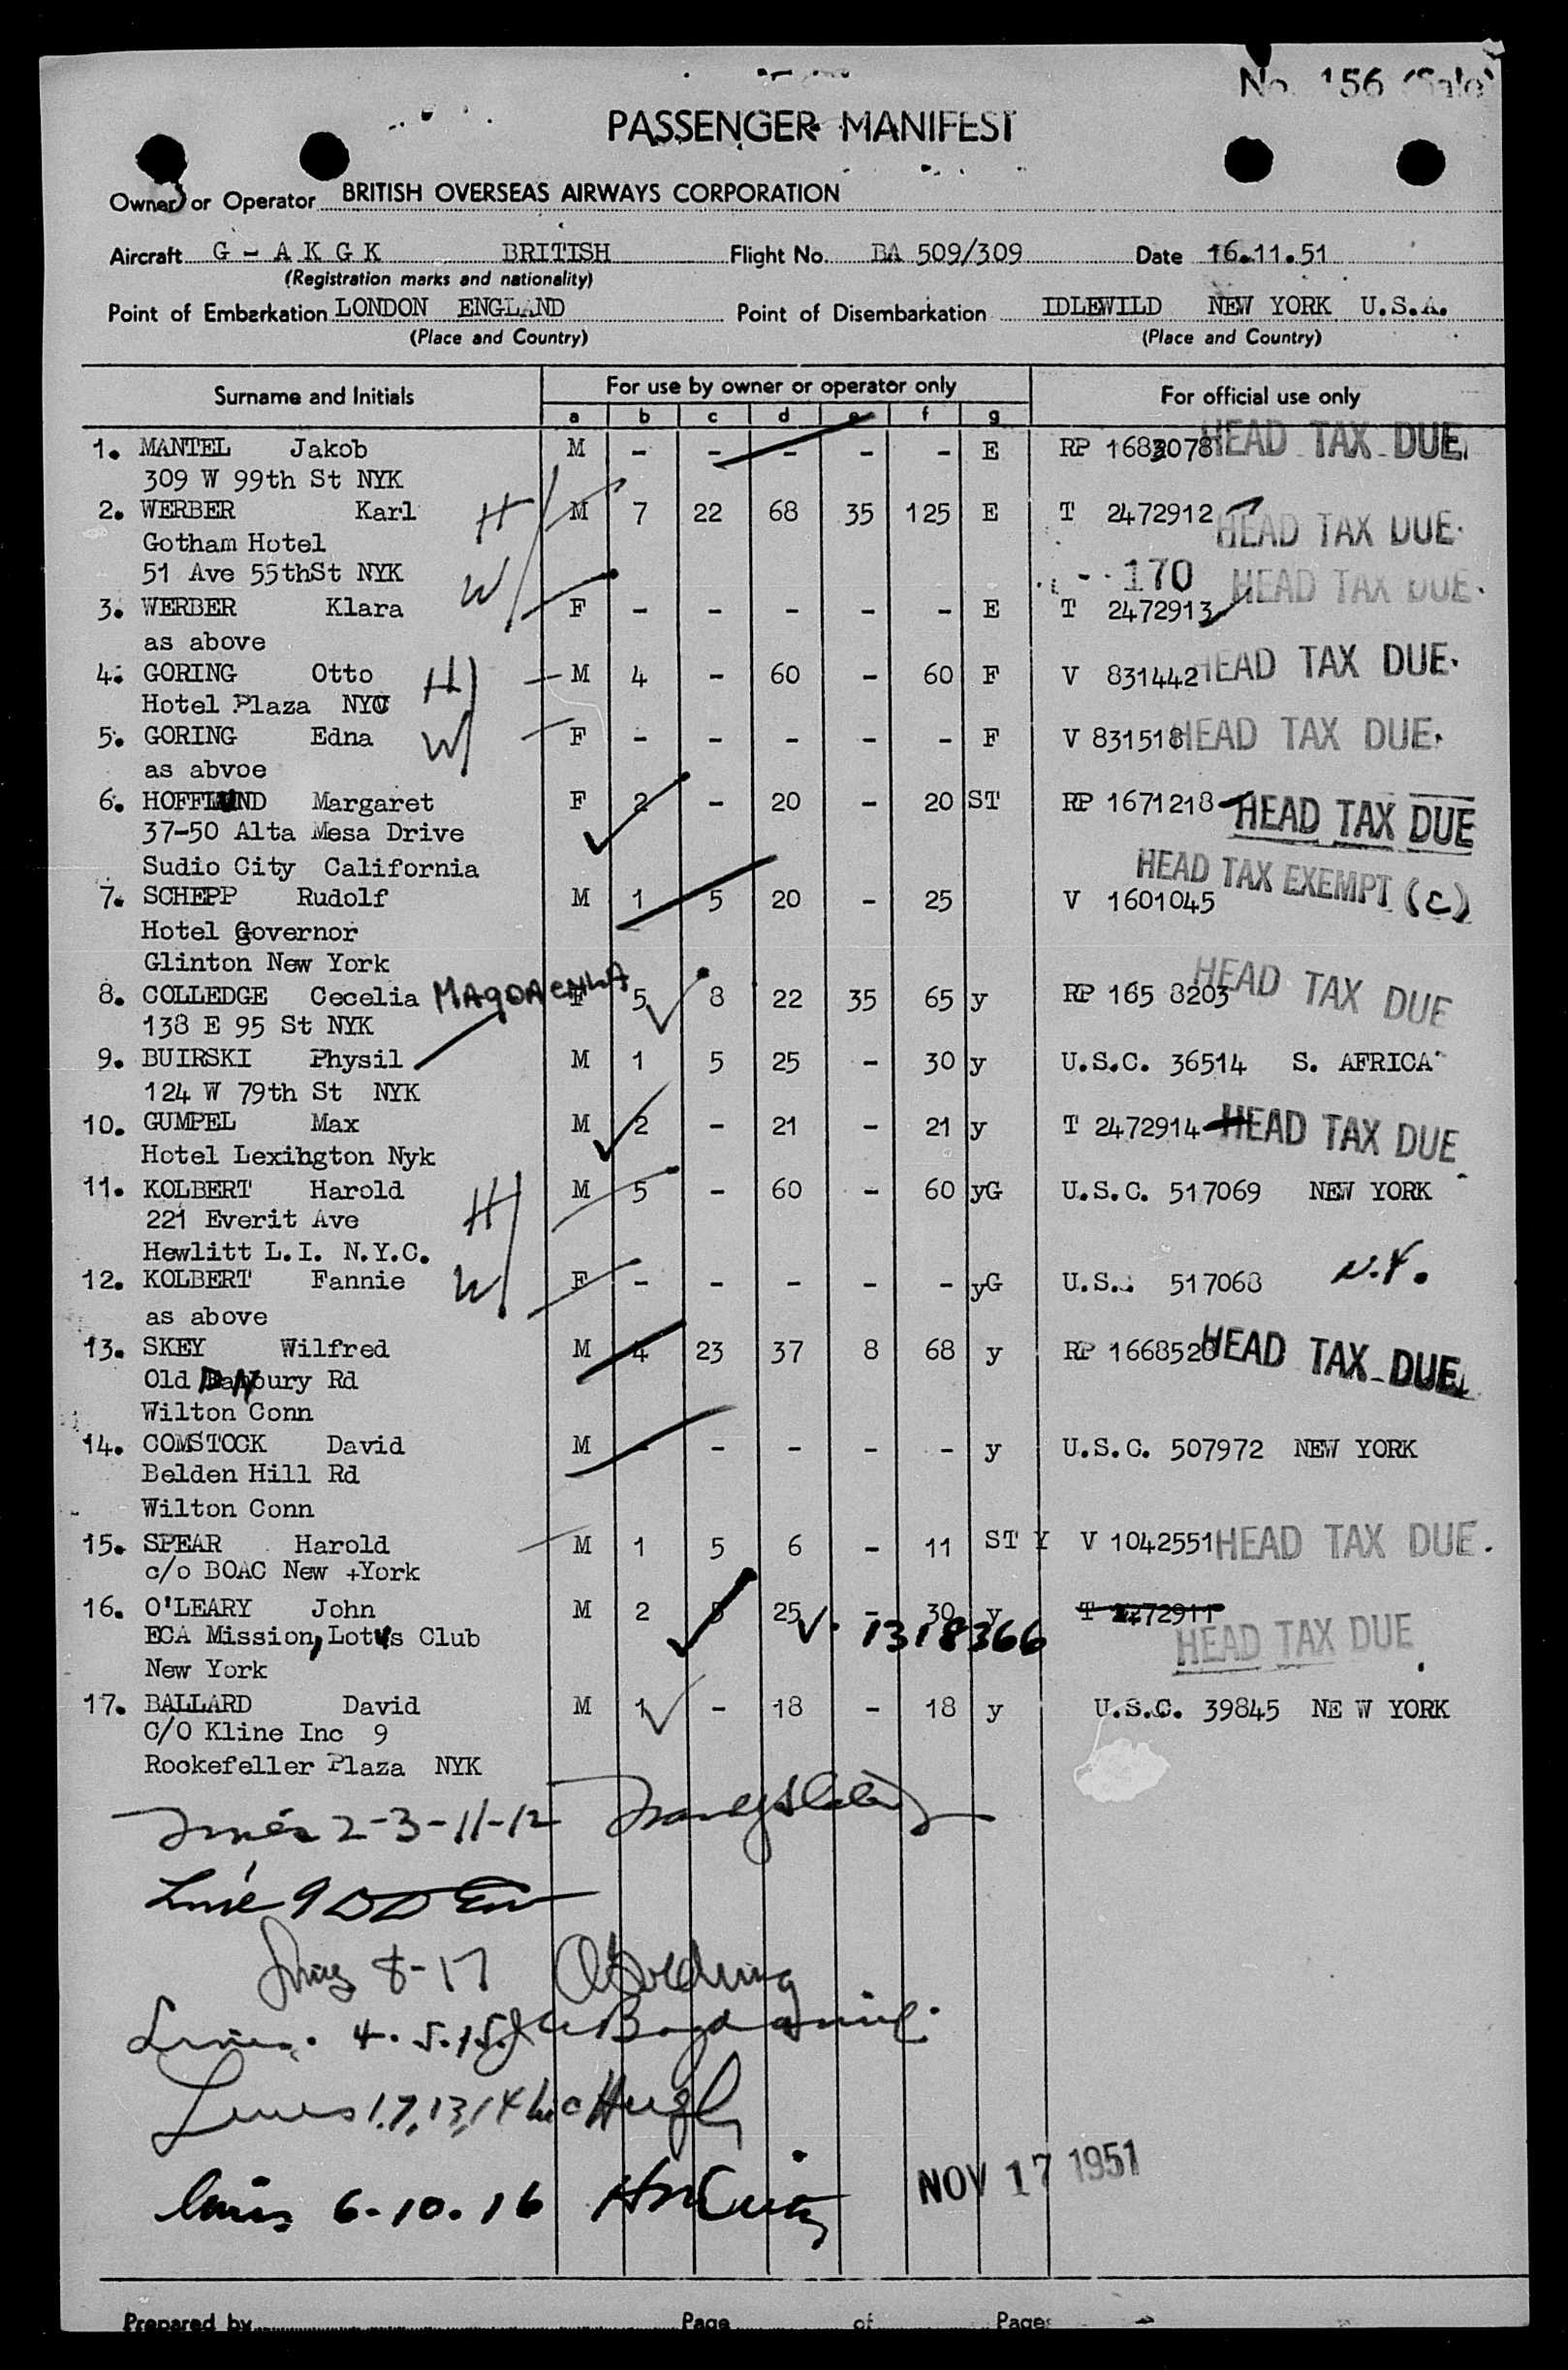 No. 156 (Sale)
PASSENGER MANIFEST
Owner or Operator BRITISH OVERSEAS AIRWAYS CORPORATION
Aircraft G - A K G K BRITISH Flight No. BA 509/309 Date 16.11.51
(Registration marks and nationality)
Point of Embarkation LONDON ENGLAND Point of Disembarkation IDLEWILD NEW YORK U.S.A.
(Place and Country) (Place and Country)
Surname and Initials For use by owner or operator only For official use only
a b c d e f g
1. MANTEL Jakob M - - - - - E RP 1683078 HEAD TAX DUE.
309 W 99th St NYK
2. WERBER Karl H M 7 22 68 35 125 E T 2472912 HEAD TAX DUE.
Gotham Hotel
51 Ave 55thSt NYK W 170 HEAD TAX DUE.
3. WERBER Klara F - - - - - E T 2472913
as above
4. GORING Otto H M 4 - 60 - 60 F V 831442 HEAD TAX DUE.
Hotel Plaza NYC
5. GORING Edna W F - - - - - F V 831518 HEAD TAX DUE.
as abvoe
6. HOFFLUND Margaret F 2 - 20 - 20 ST RP 1671218 HEAD TAX DUE
37-50 Alta Mesa Drive
Sudio City California HEAD TAX EXEMPT (c)
7. SCHEPP Rudolf M 1 5 20 - 25 V 1601045
Hotel Governor
Glinton New York
8. COLLEDGE Cecelia MAGDAENLA F 5 8 22 35 65 y RP 165 8203 HEAD TAX DUE
138 E 95 St NYK
9. BUIRSKI Physil M 1 5 25 - 30 y U.S.C. 36514 S. AFRICA
124 W 79th St NYK
10. GUMPEL Max M 2 - 21 - 21 y T 2472914 HEAD TAX DUE
Hotel Lexihgton Nyk
11. KOLBERT Harold H M 5 - 60 - 60 yG U.S.C. 517069 NEW YORK
221 Everit Ave
Hewlitt L.I. N.Y.C.
12. KOLBERT Fannie W F - - - - - yG U.S.. 517068 N.Y.
as above
13. SKEY Wilfred M 4 23 37 8 68 y RP 1668528 HEAD TAX DUE.
Old Danbury Rd
Wilton Conn
14. COMSTOCK David M - - - - - y U.S.C. 507972 NEW YORK
Belden Hill Rd
Wilton Conn
15. SPEAR Harold M 1 5 6 - 11 ST Y V 1042551 HEAD TAX DUE.
c/o BOAC New +York
16. O'LEARY John M 2 5 25 - 30 y T 2472911
ECA Mission, Lotus Club V. 1318366 HEAD TAX DUE
New York
17. BALLARD David M 1 - 18 - 18 y U.S.C. 39845 NE W YORK
C/O Kline Inc 9
Rockefeller Plaza NYK
Lines 2-3-11-12
Line 9
Lines 8-17
Lines. 4. 5. 15.
Lines 1.7,13,14 McHugh
lines 6-10.16
NOV 17 1951
Prepared by Page of Pages